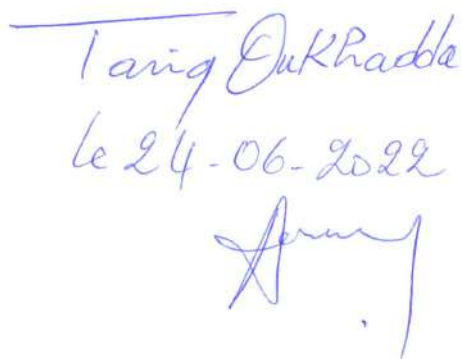 Tariq OuKhadda
le 24-06-2022